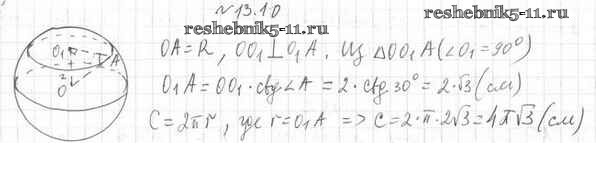 №13.10
reshebnik5-11.ru
reshebnik5-11.ru
OA=R, OO₁⊥O₁A. Из △OO₁A (∠O₁=90°)
O₁A=OO₁·ctg∠A = 2·ctg 30° = 2·√3 (см)
C=2πr, где r=O₁A => C=2·π·2√3=4π√3 (см)
O₁ R A
2
O